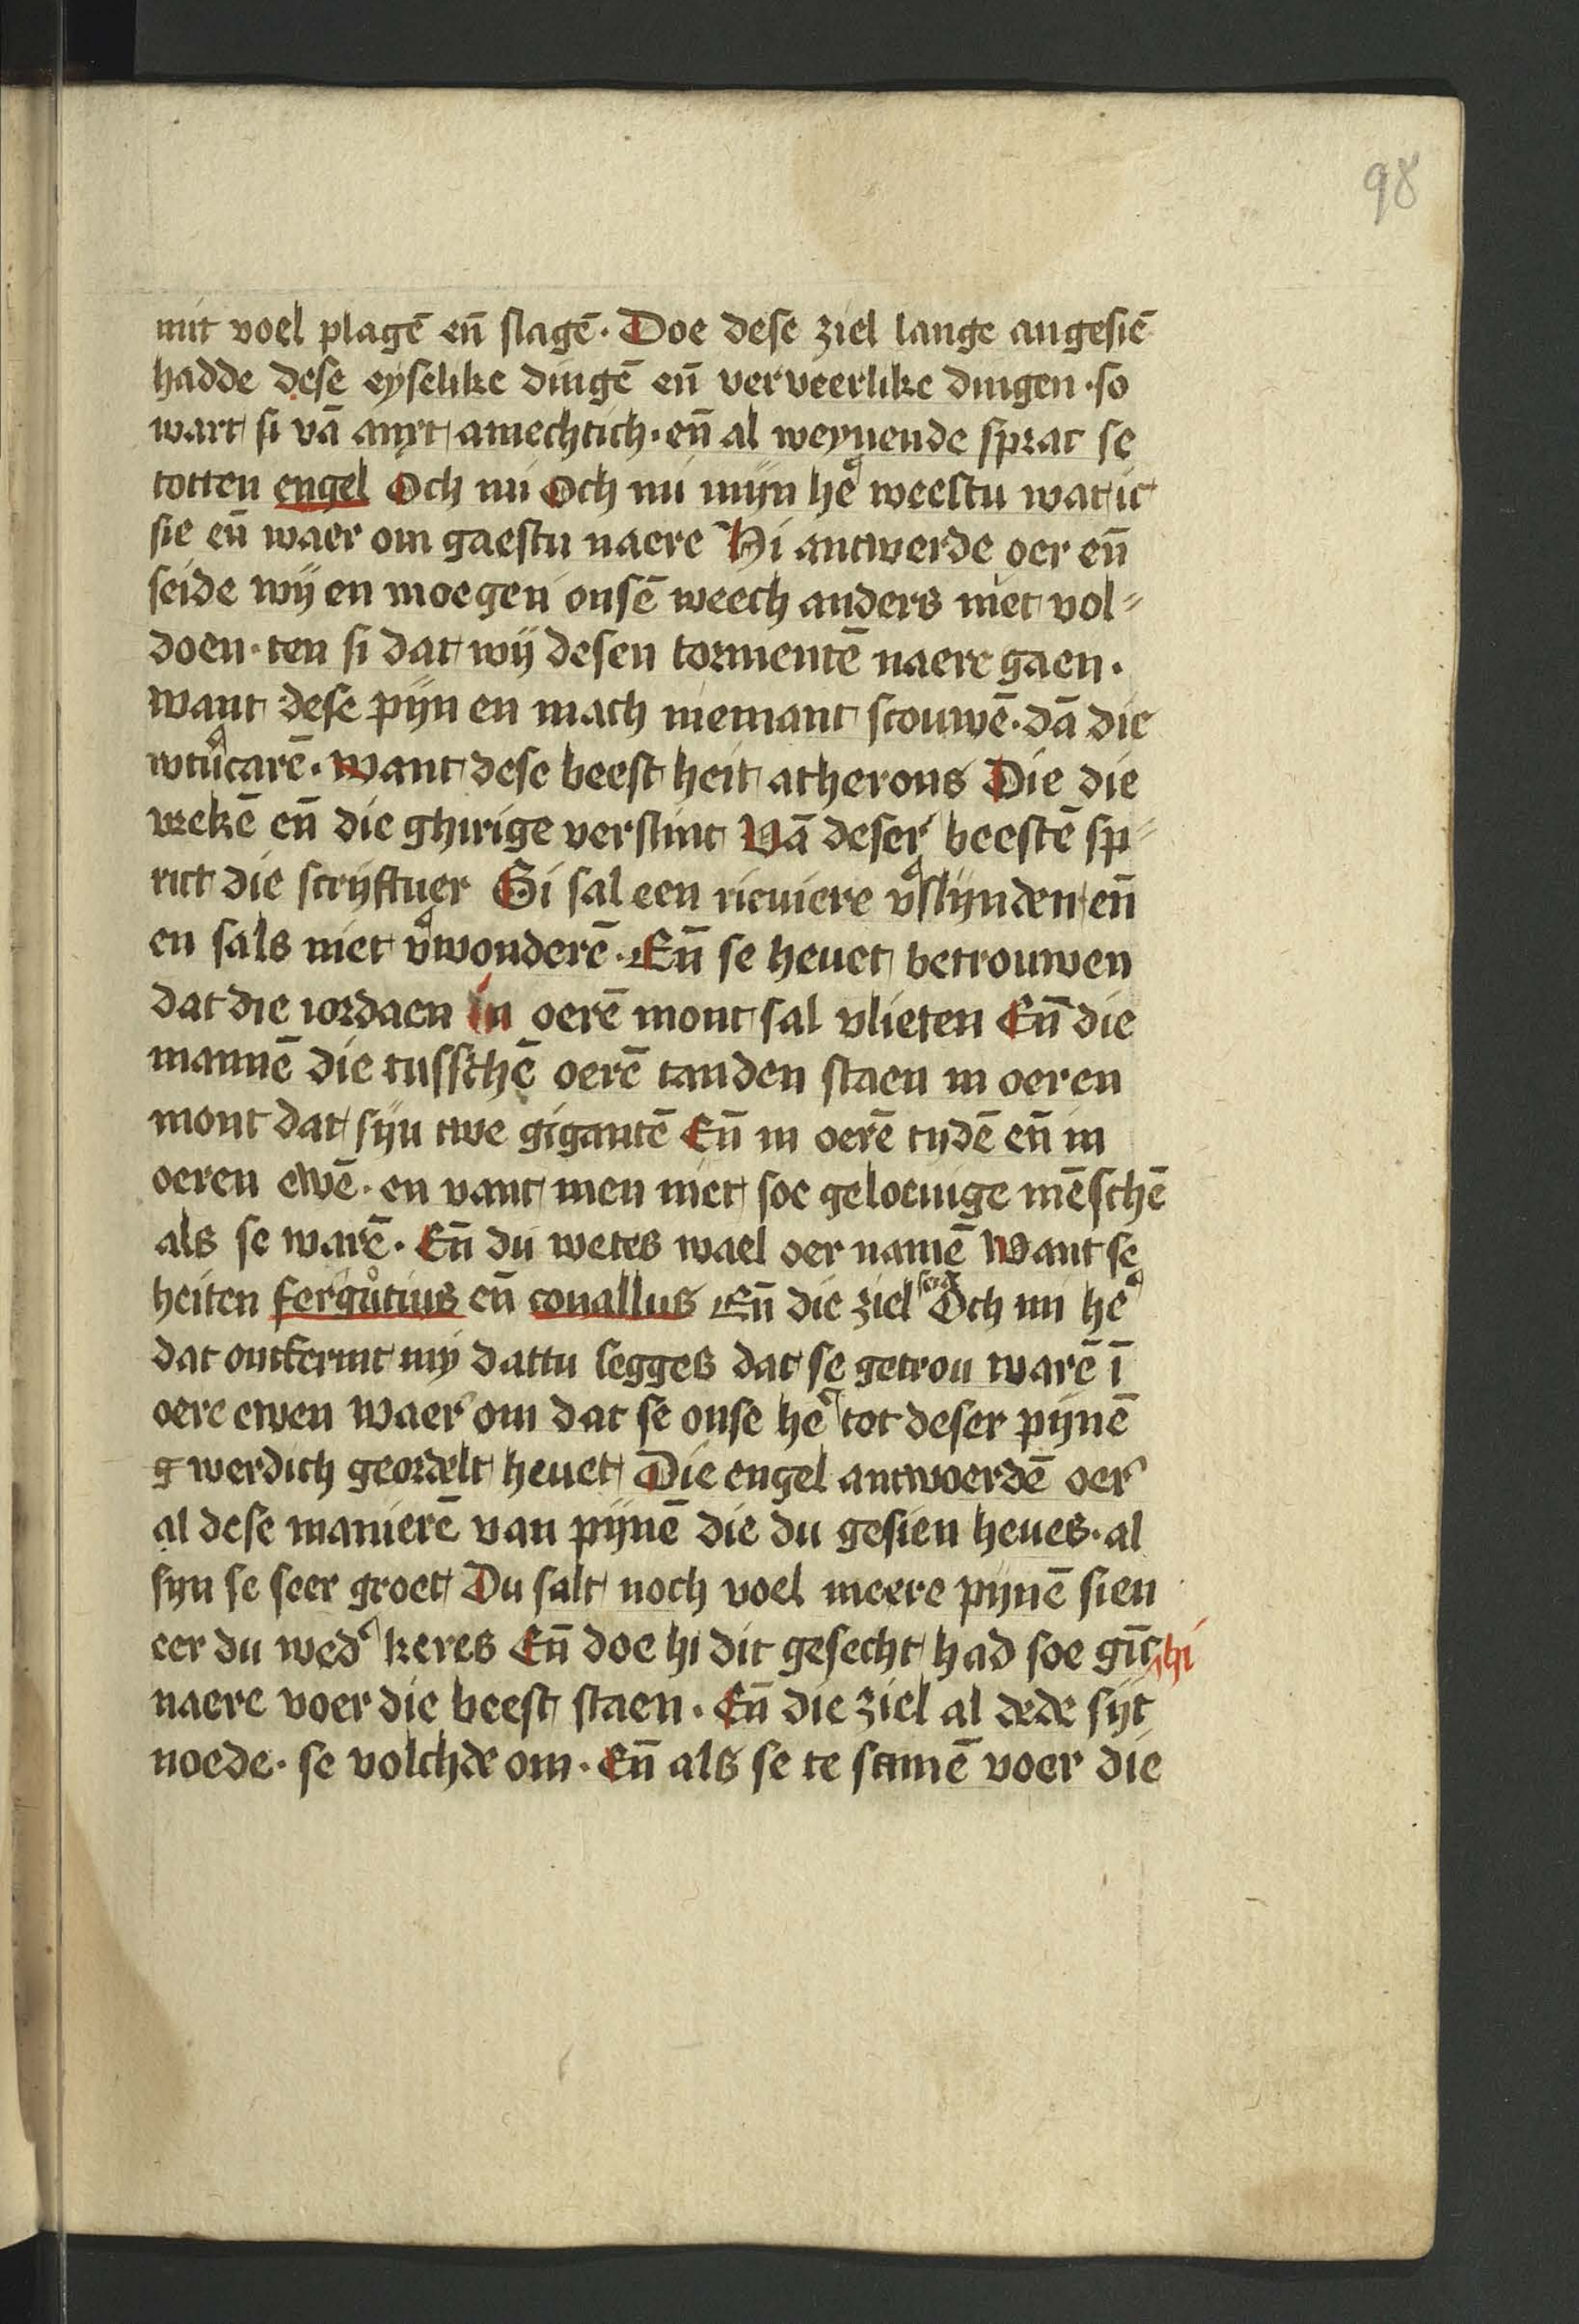 98
mit voel plagē en̄ slagē. Doe dese ziel lange angesiē
hadde dese eyselike dingē en̄ verveerlike dingen · so
wart si vā anxt amechtich · en̄ al weynende sprac se
totten engel Och mi Och mi mijn he᷑ weestu wat ic
sie en̄ waer om gaestu naere Hi antwerde oer en̄
seide wij en moegen onsē weech anders niet vol⸗
doen · ten si dat wij desen tormentē naere gaen ·
want dese pijn en mach niemant scouwē · dā die
wtu᷑carē · Want dese beest heit atherons Die die
vrekē en̄ die ghirige verslint Vā deser beestē sp⸗
rict die scryftuer Si sal een rieviere v᷑slijnden en̄
en sals niet v᷑wonderē · En̄ se hevet betrouwen
dat die iordaen in oerē mont sal vlieten En̄ die
mannē die tusschē oerē tanden staen in oeren
mont dat sijn twe gigantē En̄ in oerē tijdē en̄ in
oeren ewē · en vant men niet soe geloevige mēschē
als se warē · En̄ du wetes wael oer namē Want se
heiten fergůtius en̄ conallus En̄ die ziel seid᷑ Och mi he᷑
dat ontfermt mij dattu segges dat se getrou warē ī
oere ewen waer om dat se onse he᷑ tot deser pijnē
werdich geordelt hevet Die engel antwoerdē oer
al dese manierē van pijnē die du gesien heves · al
sijn se seer groet Du salt noch voel meere pijnē sien
eer du wed᷑ keres En̄ doe hi dit gesecht had soe gīc hi
naere voer die beest staen · En̄ die ziel al dede sijt
noede · se volchde om · En̄ als se te samē voer die